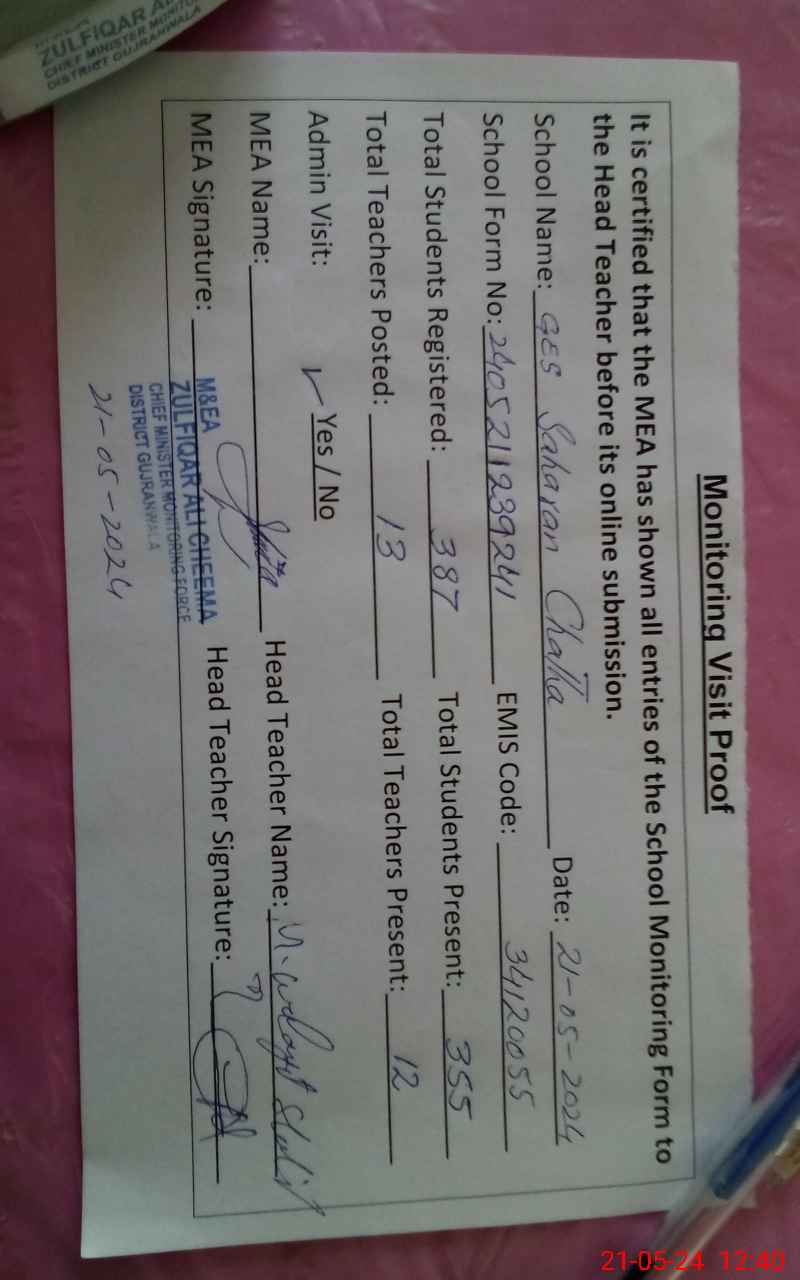 ZULFIQAR A
CHIEF MINISTER MONITO
DISTRICT GUJRANWALA
Monitoring Visit Proof
It is certified that the MEA has shown all entries of the School Monitoring Form to
the Head Teacher before its online submission.
School Name: GES Saharan Chatha Date: 21-05-2024
School Form No: 2405211239241 EMIS Code: 34120055
Total Students Registered: 387 Total Students Present: 355
Total Teachers Posted: 13 Total Teachers Present: 12
Admin Visit: ✓ Yes / No
MEA Name: Head Teacher Name: M.
MEA Signature: Head Teacher Signature:
M&EA
ZULFIQAR ALI CHEEMA
CHIEF MINISTER MONITORING FORCE
DISTRICT GUJRANWALA
21-05-2024
21-05-24 12:40